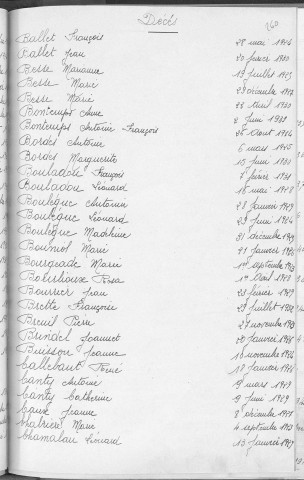 Décés
260
Ballet François 28 mai 1916
Ballet Jean 20 février 1930
Besse Marianne 13 juillet 1925
Besse Marie 23 décembre 1912
Besse Marie 25 Avril 1930
Bontemps Anne 2 juin 1930
Bontemps Antoine François 26 Août 1916
Bordes Antoine 6 mars 1915
Bordes Marguerite 10 juin 1930
Bouladou François 7 février 1930
Bouladou Léonard 18 mai 1928
Boulègue Antoinine 28 janvier 1929
Boulègue Léonard 23 juin 1924
Boulègue Madeleine 21 décembre 1929
Bouniol Marie 21 janvier 1920
Bourgeade Marie 1er septembre
Rosa 1er Avril 1928
Bourrier Jean 23 février 1929
Brette Françoise 23 juillet 1920
Breuil Pierre 27 novembre 1930
Brindel Jeannet 20 janvier 1916
Buisson Jeanne 16 novembre 1926
Callebaut René 18 janvier 1916
Canty Antoine 19 mars 1929
Canty Catherine 9 juin 1929
Caux Jeanne 8 décembre 1927
Chatrieix Marie 4 septembre 1923
Chamalau Léonard 13 janvier 1929